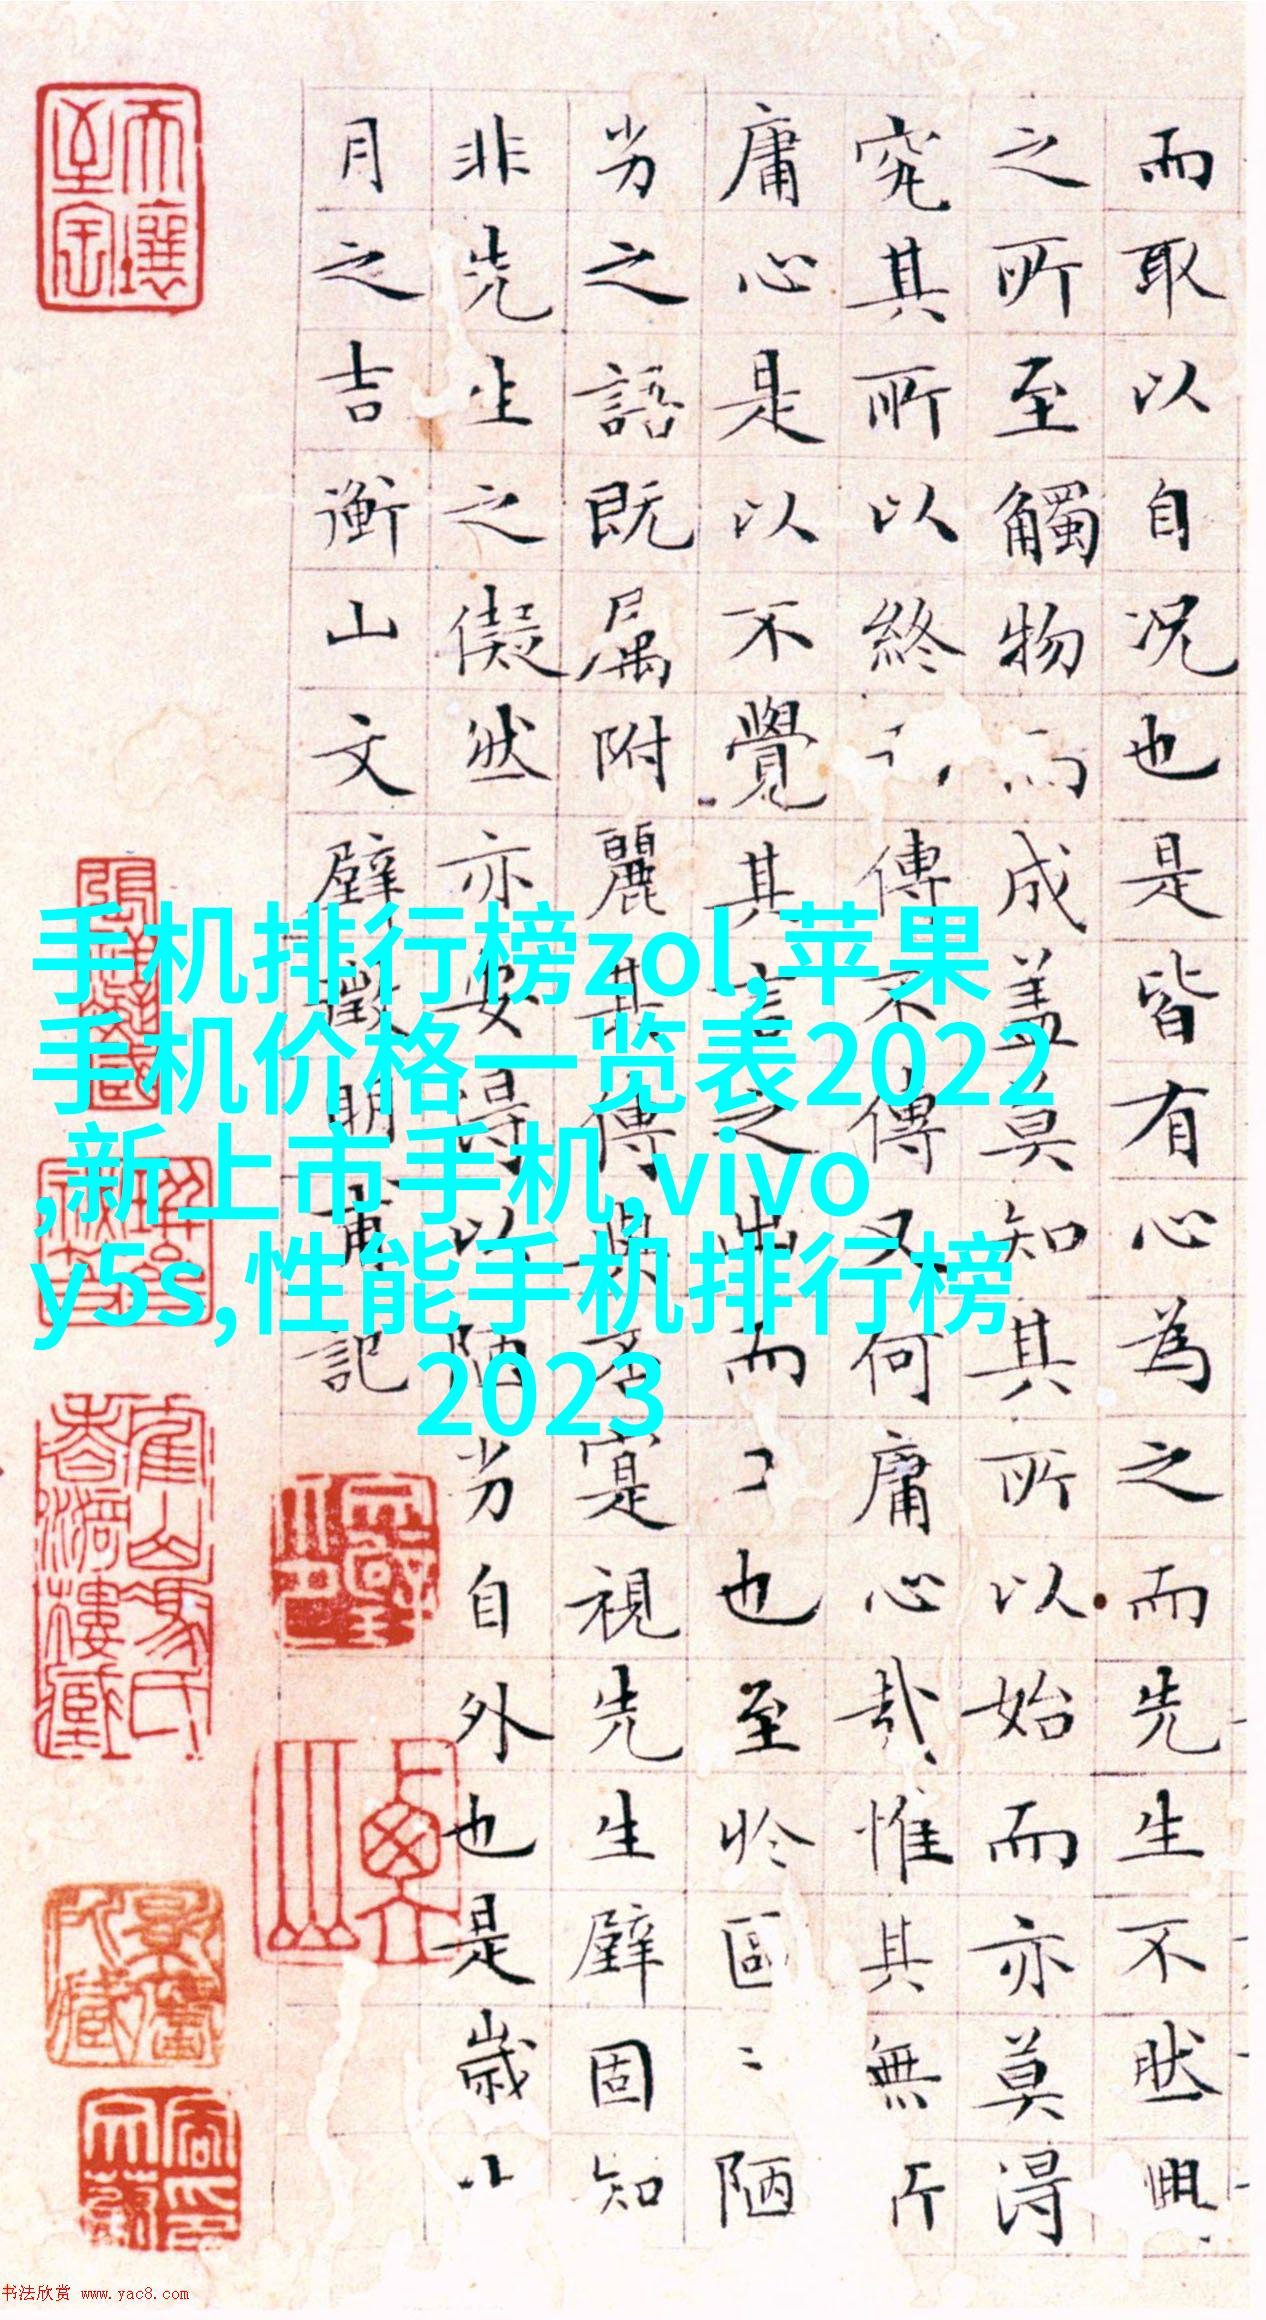 而取以自况也是皆有心為之而先生不然興
之所至觸物而成盖莫知其所以始而亦莫得
究其所以終 傳不傳又何庸心哉惟其無所
庸心是以不覺其言之出而 也至於區 陋
劣之語既属附麗其傳與不寔視先生壁固知
非先生之儗然亦安得以陋劣自外也是歲
月之吉衡山文壁徵明甫記
手机排行榜zol,苹果
手机价格一览表2022
,新上市手机,vivo
y5s,性能手机排行榜
2023
书法欣赏 www.yac8.com